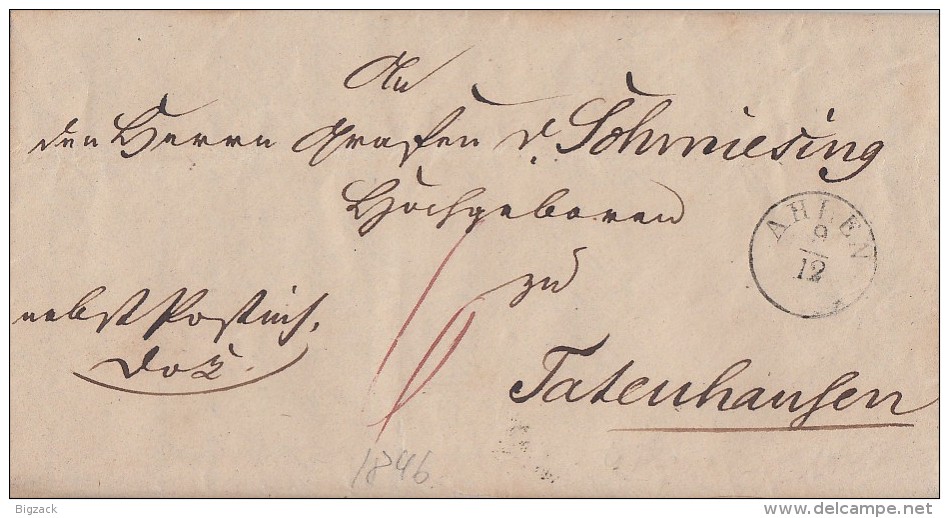 An
den Herrn Grafen v. Schmiesing
Hochgeboren
AHLEN
9
12
zu
nebst Postinsf.
Dok.
Tatenhausen
1846
Bigzack
www.delcampe.net